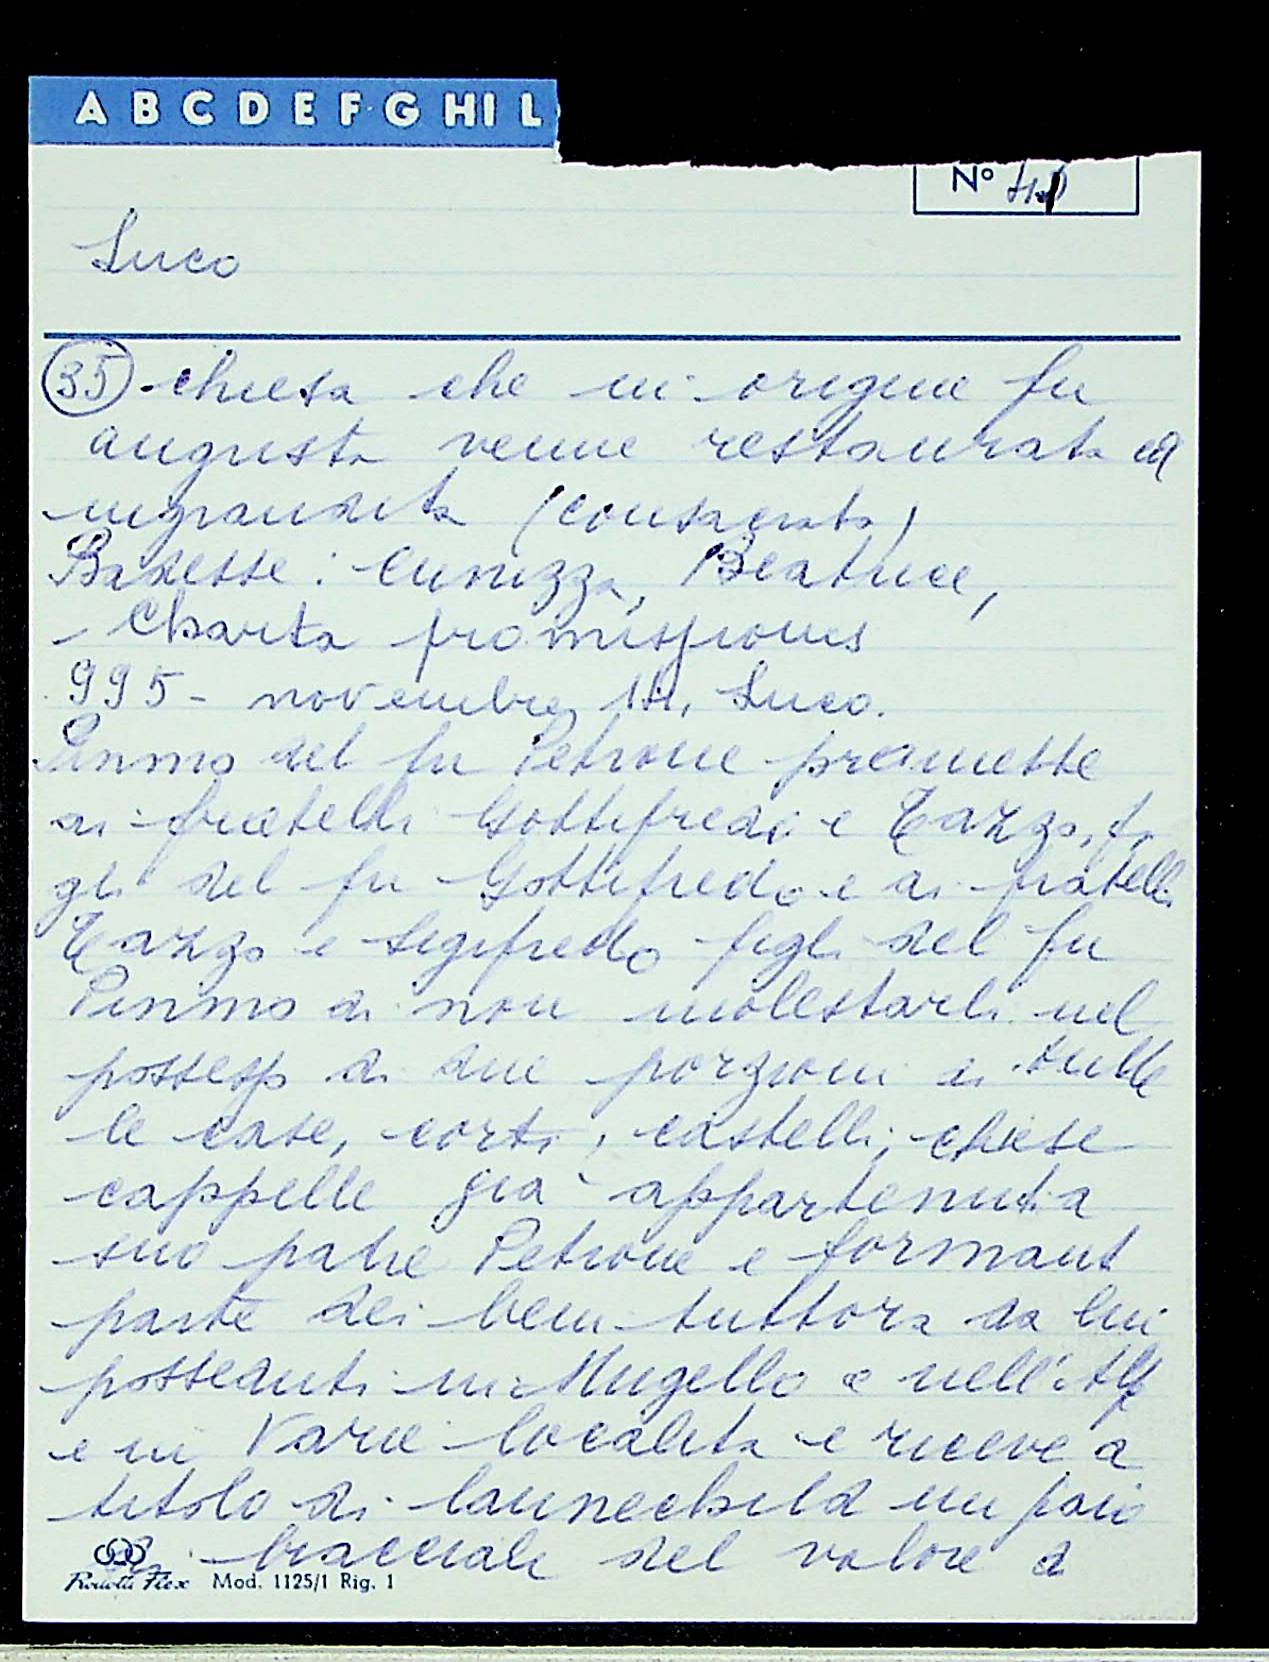 A B C D E F G H I L
N° 40
Luco
35 - chiesa che in origine fu
angusta venne restaurata ed
ingrandita (consacrata)
Badesse: Cunizza, Beatrice,
- Charta promissionis
995 - novembre, 14, Luco.
Pinmo del fu Petrone promette
ai fratelli Gottifredo e Tazzo, fi
gli del fu Gottifredo e ai fratelli
Tazzo e Sigifredo figli del fu
Pinmo di non molestarli nel
possesso di due porzioni di tutte
le case, corti, castelli, chiese
cappelle già appartenuti a
suo padre Petrone e formanti
parte dei beni tuttora da lui
posseduti in Mugello e nell'Alpe
e in varie località e riceve a
titolo di launechild un paio
di bracciali del valore di
Mod. 1125/1 Rig. 1